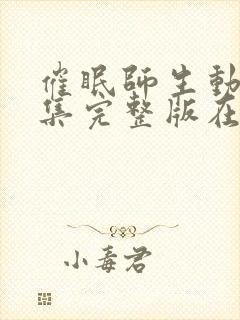 催眠師生動
集完整版在
小毒君